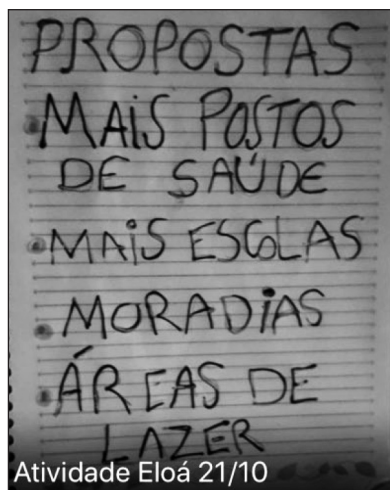 PROPOSTAS
MAIS POSTOS
DE SAÚDE
MAIS ESCOLAS
MORADIAS
ÁREAS DE
LAZER
Atividade Eloá 21/10